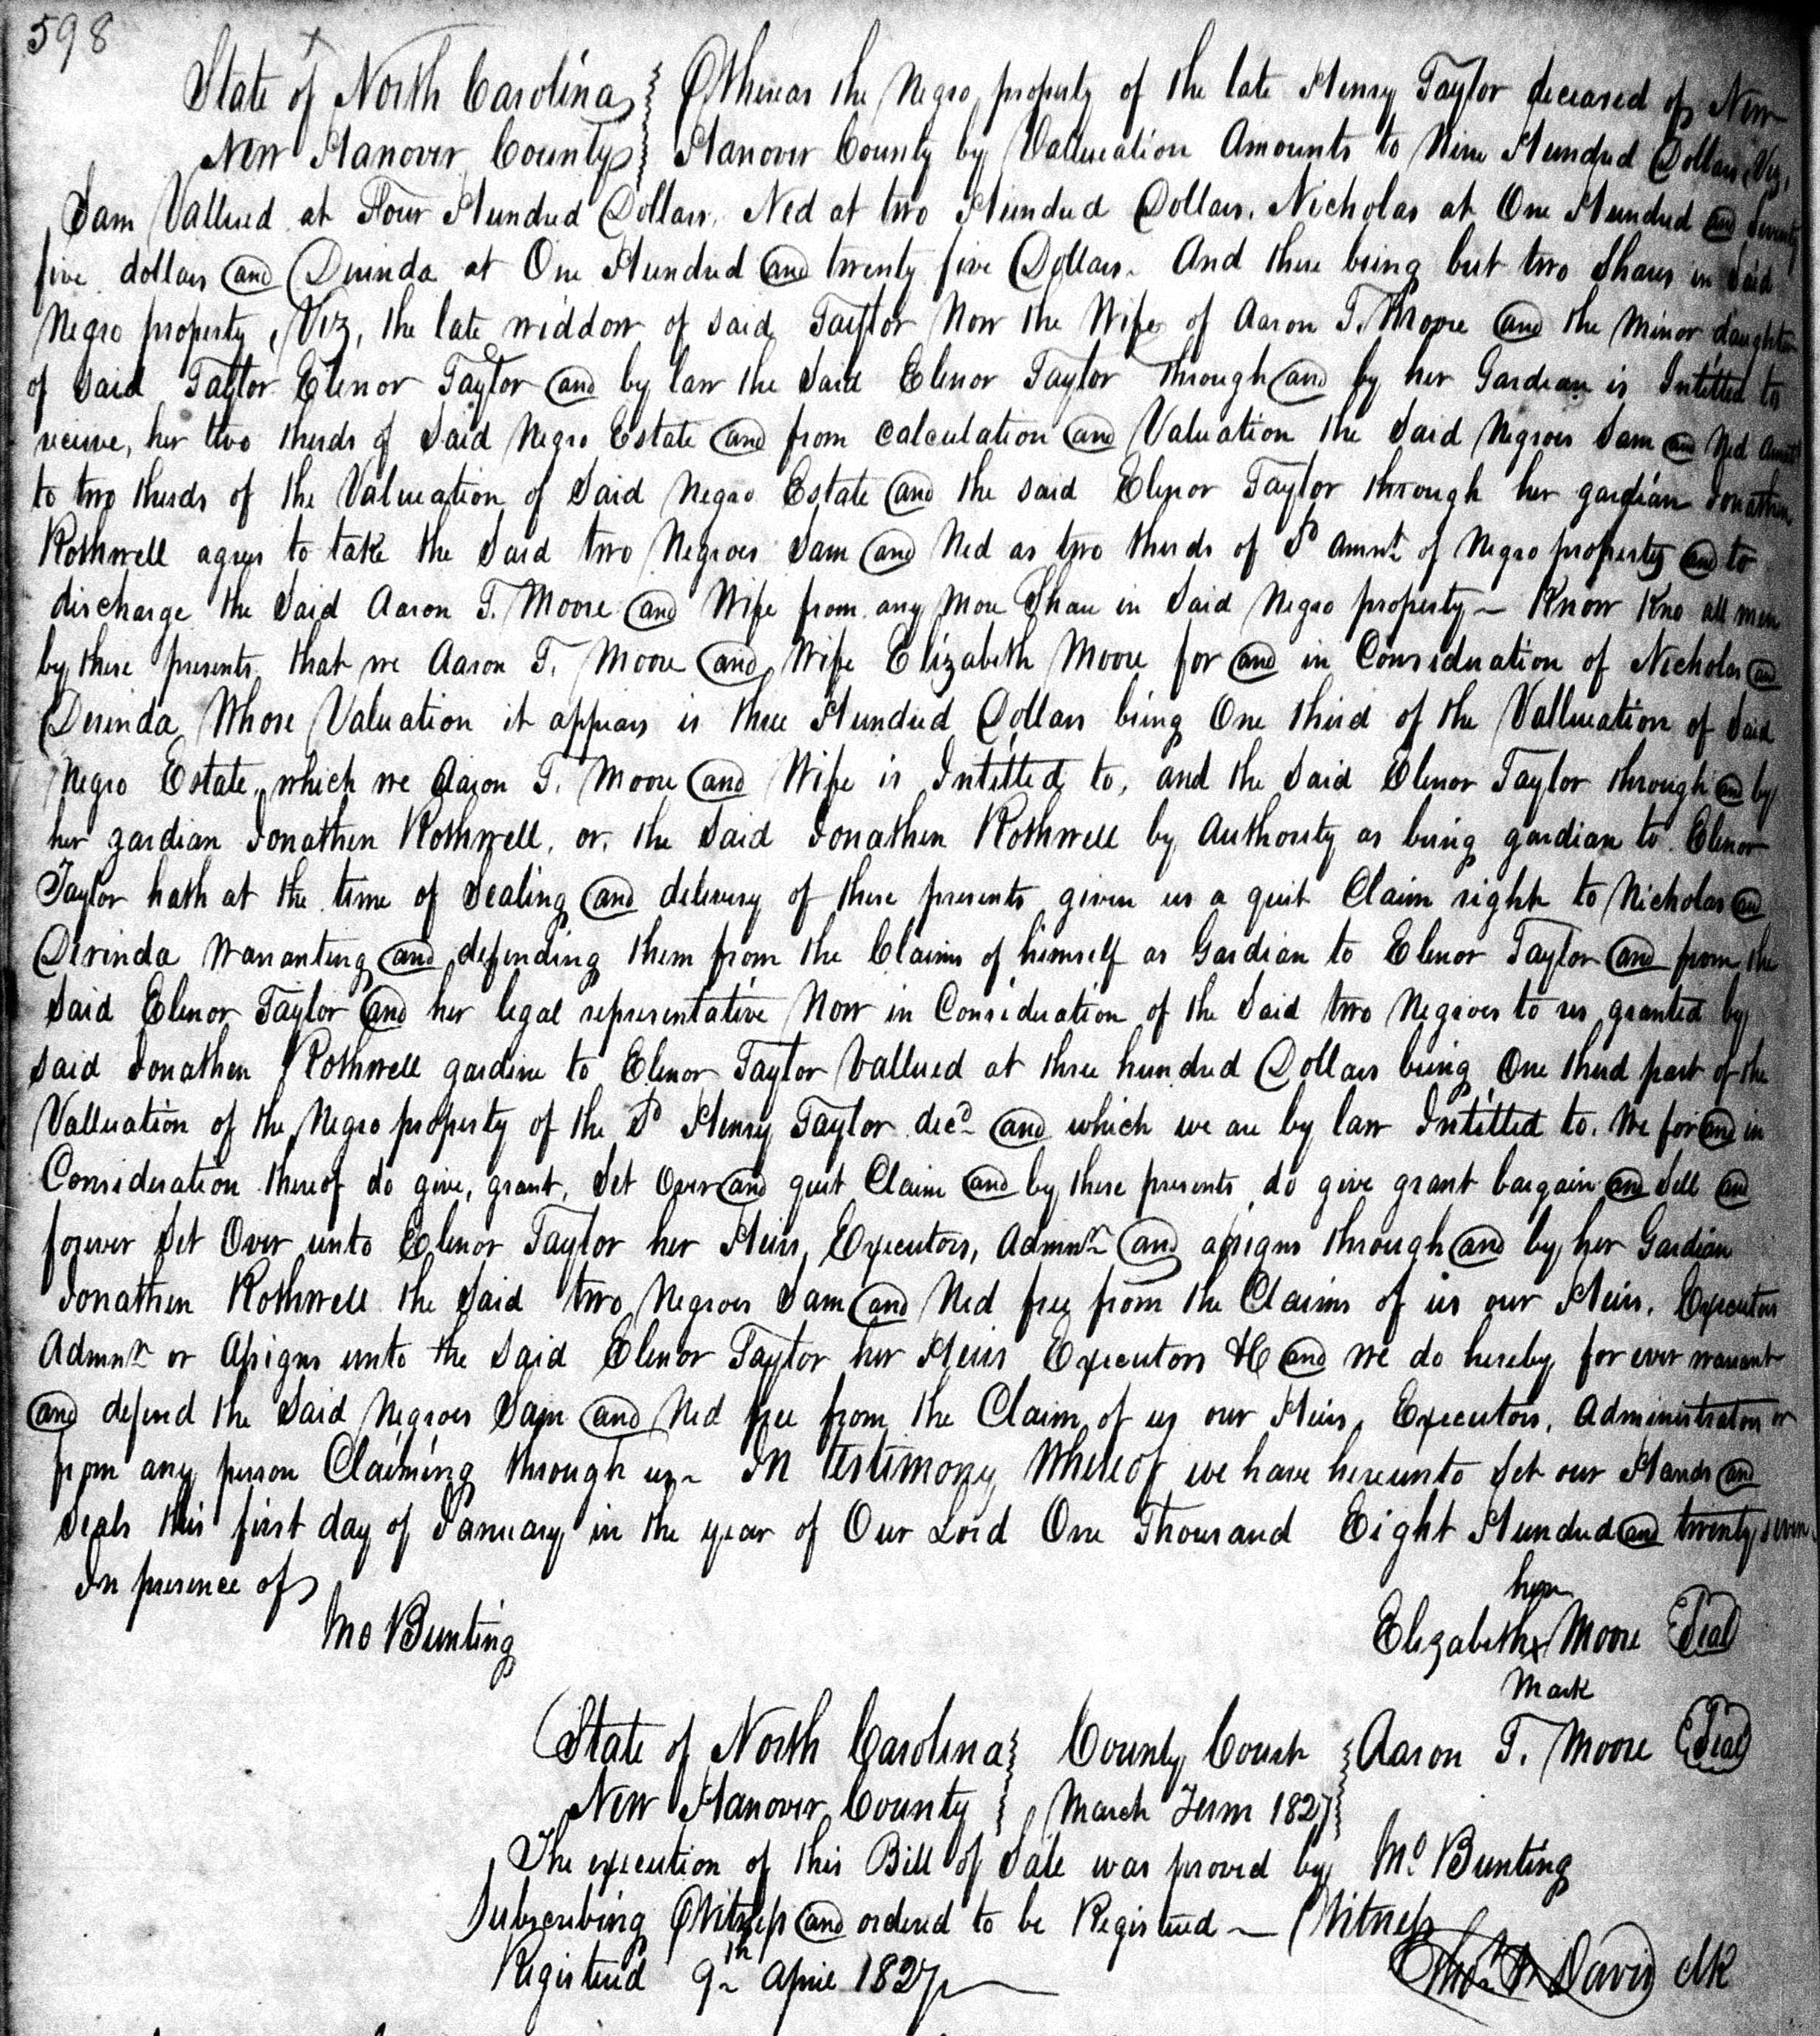 598
State of North Carolina } Whereas the Negro property of the late Henry Taylor deceased of New
New Hanover County } Hanover County by Vallueation Amounts to Nine Hundred Dollars Viz,
Sam Vallued at Four Hundred Dollars, Ned at two Hundred Dollars. Nicholas at One Hundred and Seventy
five dollars and Derinda at One Hundred and twenty five Dollars. And there being but two Shares in Said
Negro property, Viz, the late widdow of said Taylor Now the Wife of Aaron T. Moore and the Minor daughter
of said Taylor Elenor Taylor and by law the Said Elenor Taylor through and by her Gardian is Intitled to
receive, her two therds of Said Negro Estate and from calculation and Valuation the Said Negroes Sam and Ned Amt
to two therds of the Valueation of Said Negro Estate and the said Elenor Taylor through her gardian Jonathen
Rothwell agres to take the Said two Negroes Sam and Ned as two therds of Sd amnt of Negro property and to
discharge the Said Aaron T. Moore and Wife from any More Share in Said Negro property – Know Kno all men
by these presents that we Aaron T. Moore and Wife Elizabeth Moore for and in Consideration of Nicholas and
Derinda Whose Valuation it appears is three Hundred Dollars being One third of the Vallueation of Said
Negro Estate which we Aaron T. Moore and Wife is Intitled to, and the Said Elenor Taylor through and by
her gardian Jonathen Rothwell, or, the Said Jonathen Rothwell by Authority as being gardian to Elenor
Taylor hath at the time of Sealing and delivery of these presents given us a quit Claim right to Nicholas and
Derinda Warranting and defending them from the Claims of himself as Gardian to Elenor Taylor and from the
Said Elenor Taylor and her legal representative Now in Consideration of the Said two Negroes to us granted by
said Jonathen Rothwell gardine to Elenor Taylor Vallued at three hundred Dollars being One therd part of the
Valluation of the Negro property of the Sd Henry Taylor decd and which we are by law Intitled to. We for and in
Consideration thereof do give, grant, Set Over and quit Claim and by these presents do give grant bargain and Sell and
forever Set Over unto Elenor Taylor her Heirs, Executors, Admnrs and assigns through and by her Gardian
Jonathen Rothwell the Said two Negroes Sam and Ned free from the Claims of us our Heirs, Executors
Admnrs or Assigns unto the Said Elenor Taylor her Heirs Executors &C and we do hereby for ever warrant
and defend the Said Negroes Sam and Ned free from the Claim of us our Heirs, Executors, Administrators or
from any person Claiming through us – In Testimony Whereof we have hereunto Set our Hands and
Seals this first day of January in the year of Our Lord One Thousand Eight Hundred and twenty seven
In presence of
her
Mo Bunting Elizabeth x Moore Seal
Mark
State of North Carolina } County Court } Aaron T. Moore Seal
New Hanover County } March Term 1827 }
The execution of this Bill of Sale was proved by Mo Bunting
Subscribing Witness and ordered to be Registered – Witness
Registered 9th April 1827 Thos. F. Davis clk